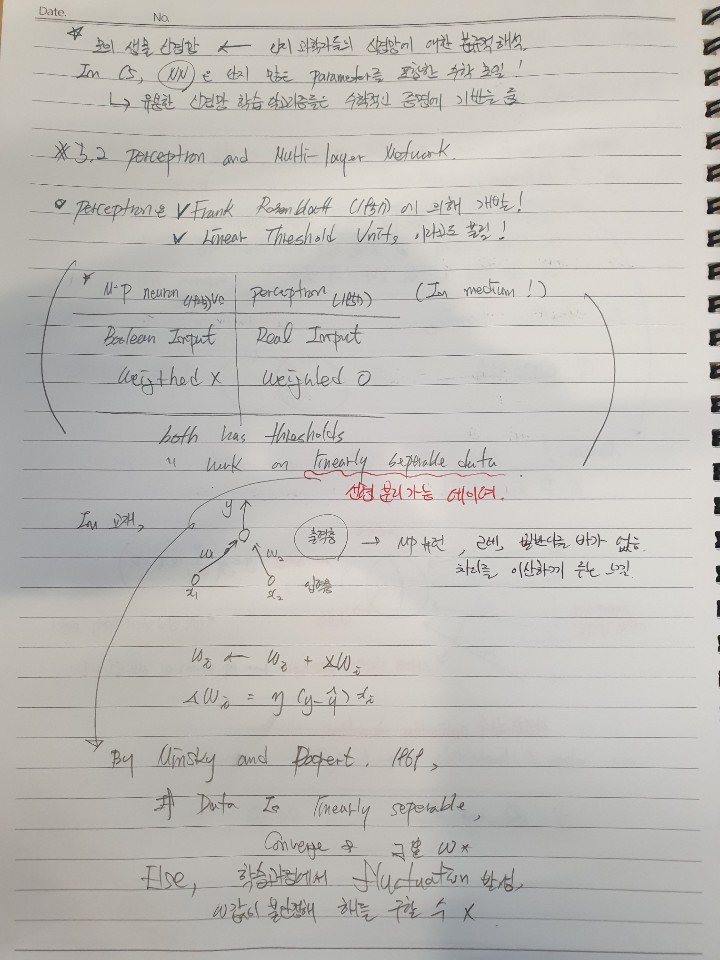 Date. No.
* 모의 생물 신경망 ← 인지 과학자들의 신경망에 대한 해석
In CS, NN은 단지 많은 parameter를 포함한 수학 모델!
↳ 유용한 신경망 학습 알고리즘들은 수학적인 증명에 기반을 둠
※ 5.2 perceptron and Multi-layer Network.
perceptron은 ✓ Frank Rosenblatt 에 의해 개발!
✓ Linear Threshold Units 이라고도 불림!
* M-P neuron vs perceptron (In medium!)
Boolean Input Real Input
Weigthed X Weighted O
both has thresholds
〃 work on linearly seperable data
선형 분리가능 데이터.
In 교재,
y
출력층 → MP 뉴런, 근데, 별반다를 바가 없음.
차이를 이산하게 두는 느낌
w₁ w₂
x₁ x₂ 입력층
wᵢ ← wᵢ + Δwᵢ
Δwᵢ = η (y-ŷ) xᵢ
By Minsky and Papert. 1969,
If Data Is linearly seperable,
Converge & w*
Else, 학습과정에서 fluctuation 발생,
w값이 불안정해 해를 구할 수 X